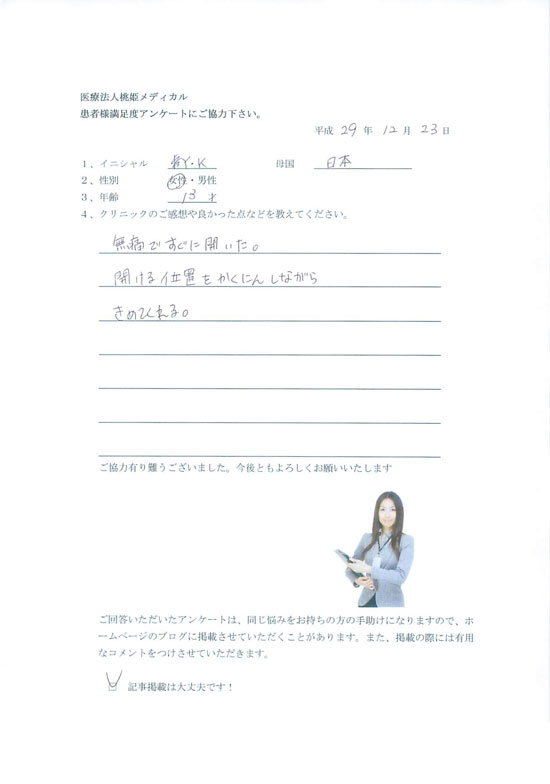 医療法人桃姫メディカル
患者様満足度アンケートにご協力下さい。
平成 29 年 12 月 23 日
1、イニシャル Y・K 母国 日本
2、性別 女性・男性
3、年齢 13 才
4、クリニックのご感想や良かった点などを教えてください。
無痛ですぐに開いた。
開ける位置をかくにんしながら
きめてくれる。
ご協力有り難うございました。今後ともよろしくお願いいたします
ご回答いただいたアンケートは、同じ悩みをお持ちの方の手助けになりますので、ホ
ームページのブログに掲載させていただくことがあります。また、掲載の際には有用
なコメントをつけさせていただきます。
記事掲載は大丈夫です！